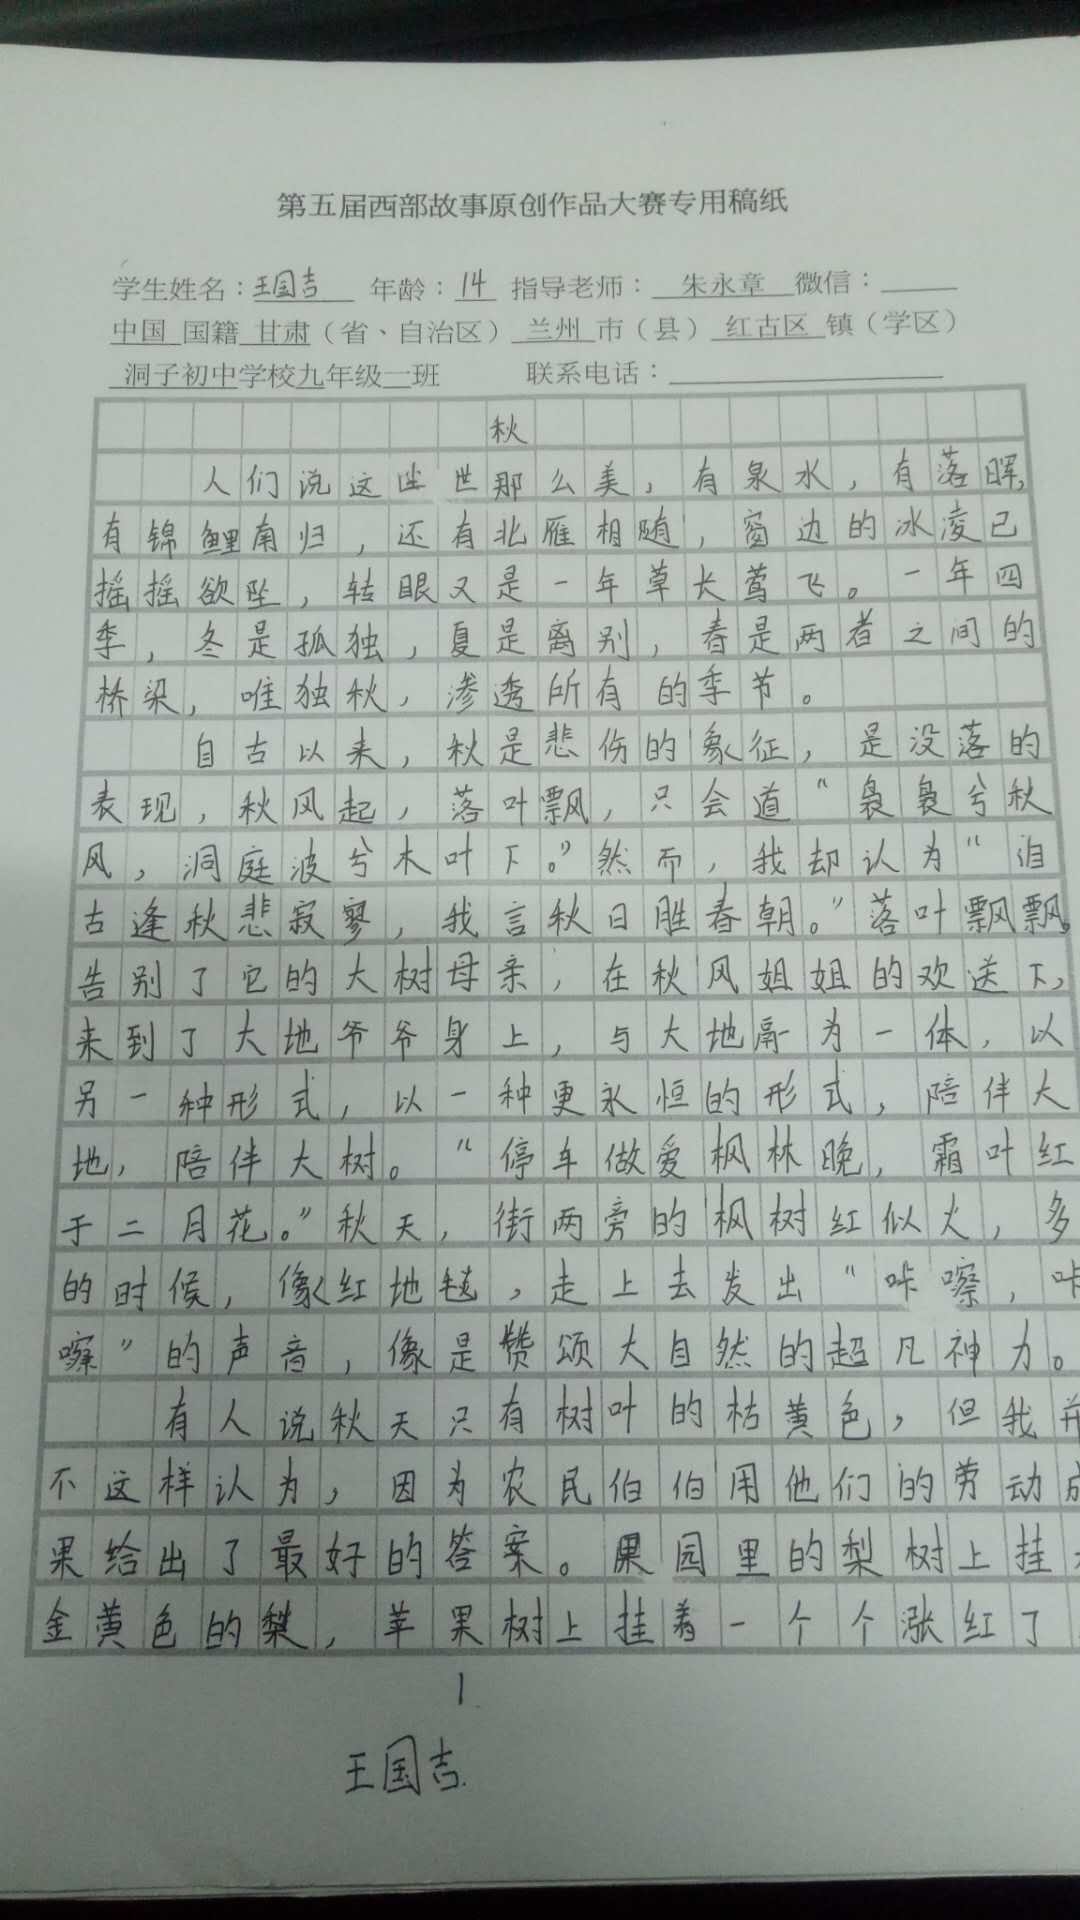 第五届西部故事原创作品大赛专用稿纸
学生姓名：王国吉 年龄：14 指导老师：朱永章 微信：
中国 国籍 甘肃（省、自治区） 兰州 市（县） 红古区 镇（学区）
洞子初中学校九年级一班 联系电话：
秋
人们说这尘世那么美，有泉水，有落晖，
有锦鲤南归，还有北雁相随，窗边的冰凌已
摇摇欲坠，转眼又是一年草长莺飞。一年四
季，冬是孤独，夏是离别，春是两者之间的
桥梁，唯独秋，渗透所有的季节。
自古以来，秋是悲伤的象征，是没落的
表现，秋风起，落叶飘，只会道“袅袅兮秋
风，洞庭波兮木叶下。”然而，我却认为“自
古逢秋悲寂寥，我言秋日胜春朝。”落叶飘飘。
告别了它的大树母亲，在秋风姐姐的欢送下，
来到了大地爷爷身上，与大地融为一体，以
另一种形式，以一种更永恒的形式，陪伴大
地，陪伴大树。“停车做爱枫林晚，霜叶红
于二月花。”秋天，街两旁的枫树红似火，多
的时候，像红地毯，走上去发出“咔嚓，咔
嚓”的声音，像是赞颂大自然的超凡神力。
有人说秋天只有树叶的枯黄色，但我并
不这样认为，因为农民伯伯用他们的劳动成
果给出了最好的答案。果园里的梨树上挂
金黄色的梨，苹果树上挂着一个个涨红了
1
王国吉